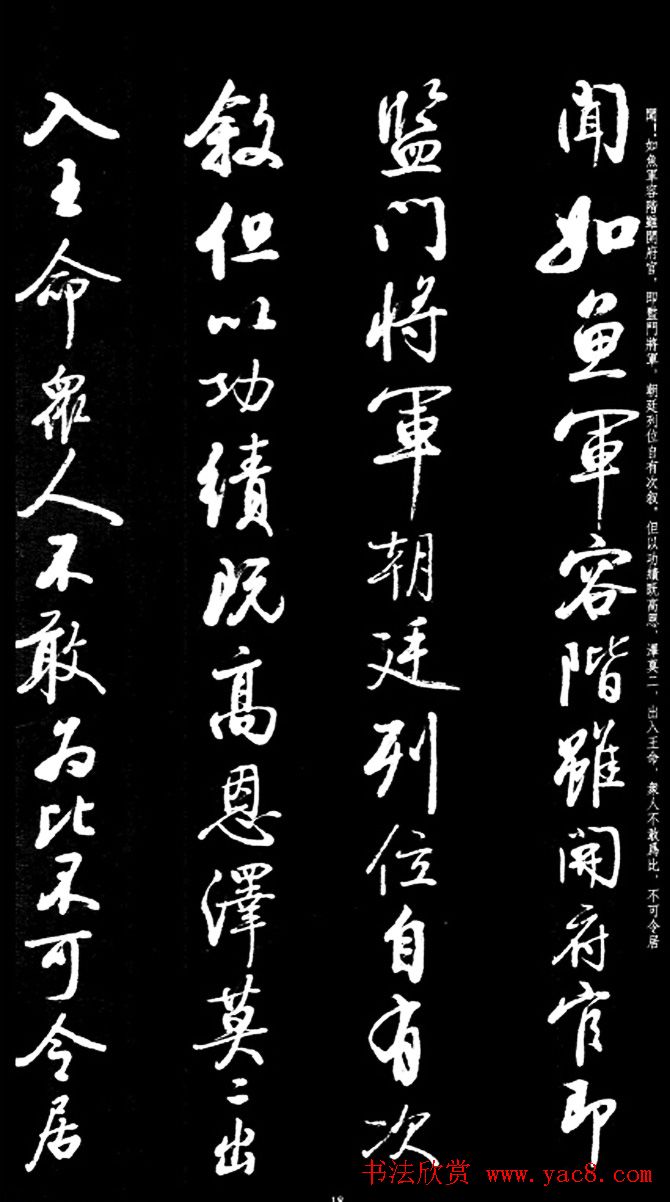 聞！如魚軍容階雖開府官，即監門將軍，朝廷列位自有次叙。但以功績既高恩，澤莫二，出入王命，衆人不敢爲比，不可令居
聞如魚軍容階雖開府官即
監門將軍朝廷列位自有次
敘但以功績既高恩澤莫二出
入王命衆人不敢為比不可令居
18
书法欣赏 www.yac8.com